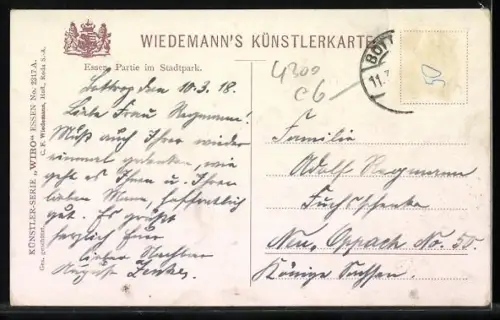 WIEDEMANN'S KÜNSTLERKARTE
Essen, Partie im Stadtpark.
KÜNSTLER-SERIE „WIRO“ ESSEN No. 2217 A.
C. E. Wiedemann, Hofl., Roda S.-A.
Ges. geschützt.
Bottrop den 10.3.18.
Liebe Frau Regmann!
Muß auch Ihrer wieder
einmal gedenken, wie
geht es Ihnen u. Ihrem
lieben Mann, hoffentlich
gut. Es grüßt
herzlich Euer
lieber Nachbar
August
4300
c6
BOTT
11.
50
Familie
Adolf Regmann
Fuchsschenke
Neu, Oppach No. 55
Königr. Sachsen.